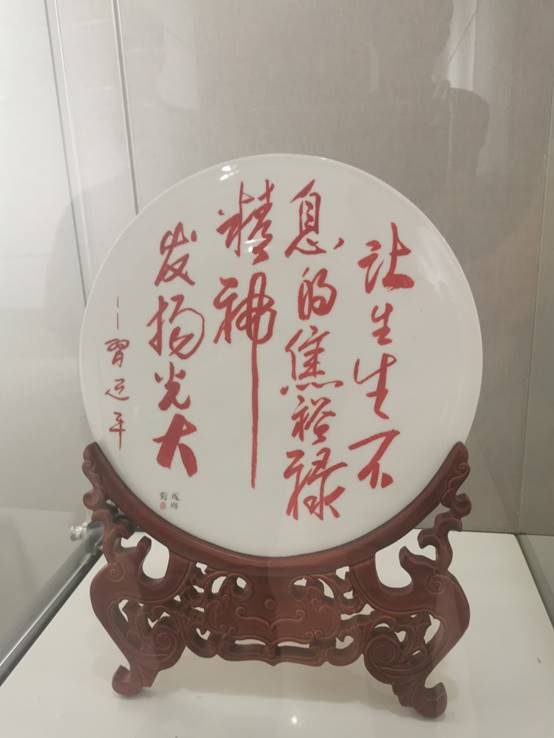 让生生不
息的焦裕禄
精神
发扬光大
—習近平